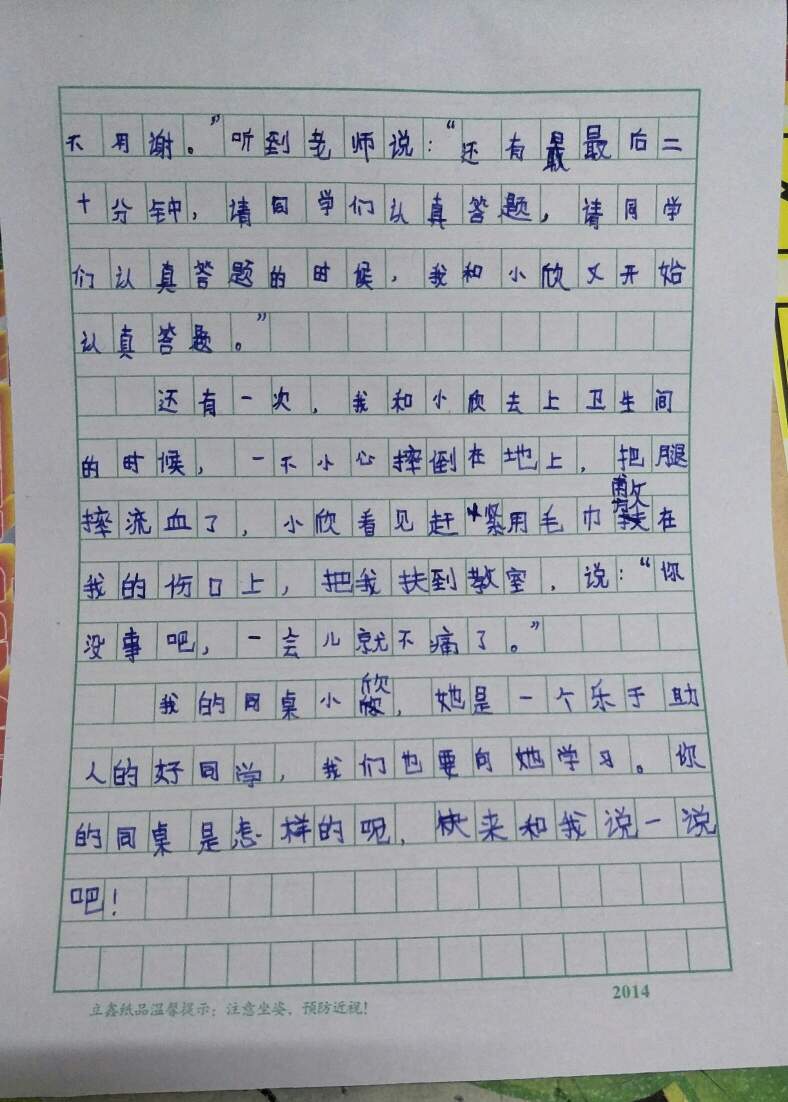 不用谢。”听到老师说：“还有最最后二
十分钟，请同学们认真答题，请同学
们认真答题的时候，我和小欣又开始
认真答题。”
还有一次，我和小欣去上卫生间
的时候，一不小心摔倒在地上，把腿
摔流血了，小欣看见赶紧用毛巾敷在
我的伤口上，把我扶到教室，说：“你
没事吧，一会儿就不痛了。”
我的同桌小欣，她是一个乐于助
人的好同学，我们也要向她学习。你
的同桌是怎样的呢，快来和我说一说
吧！
立鑫纸品温馨提示：注意坐姿、预防近视！
2014